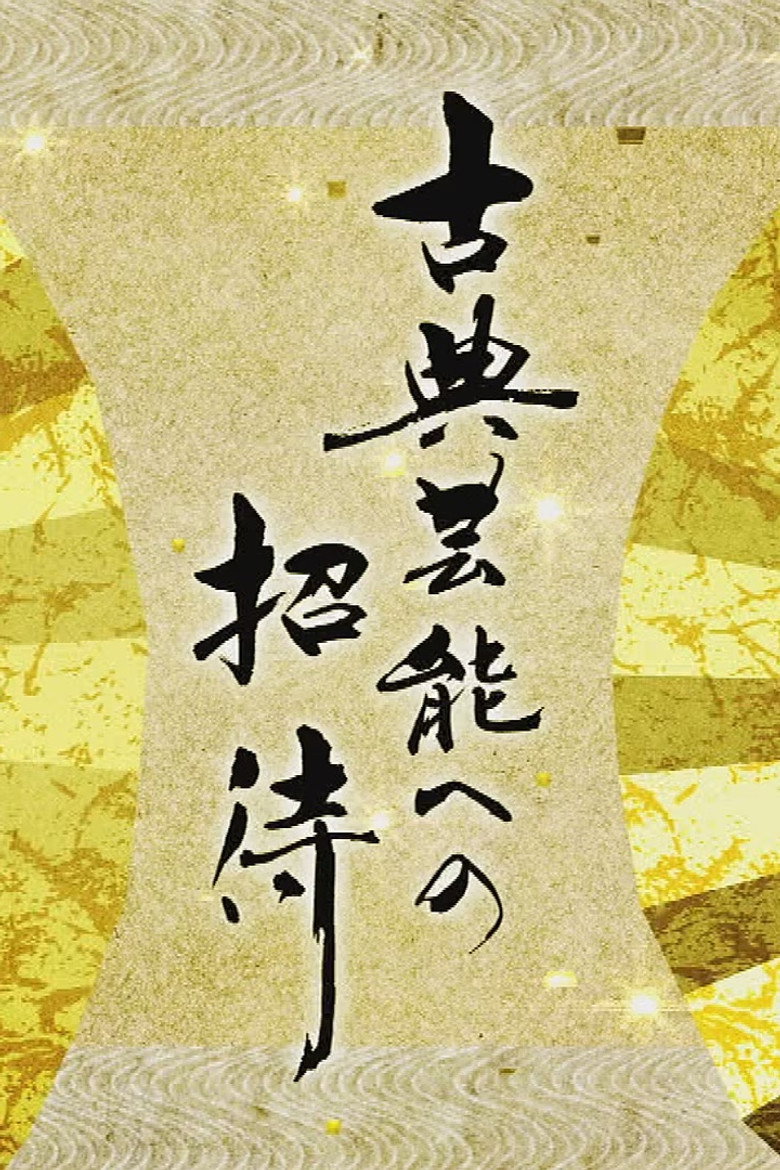 古典芸能への
招待